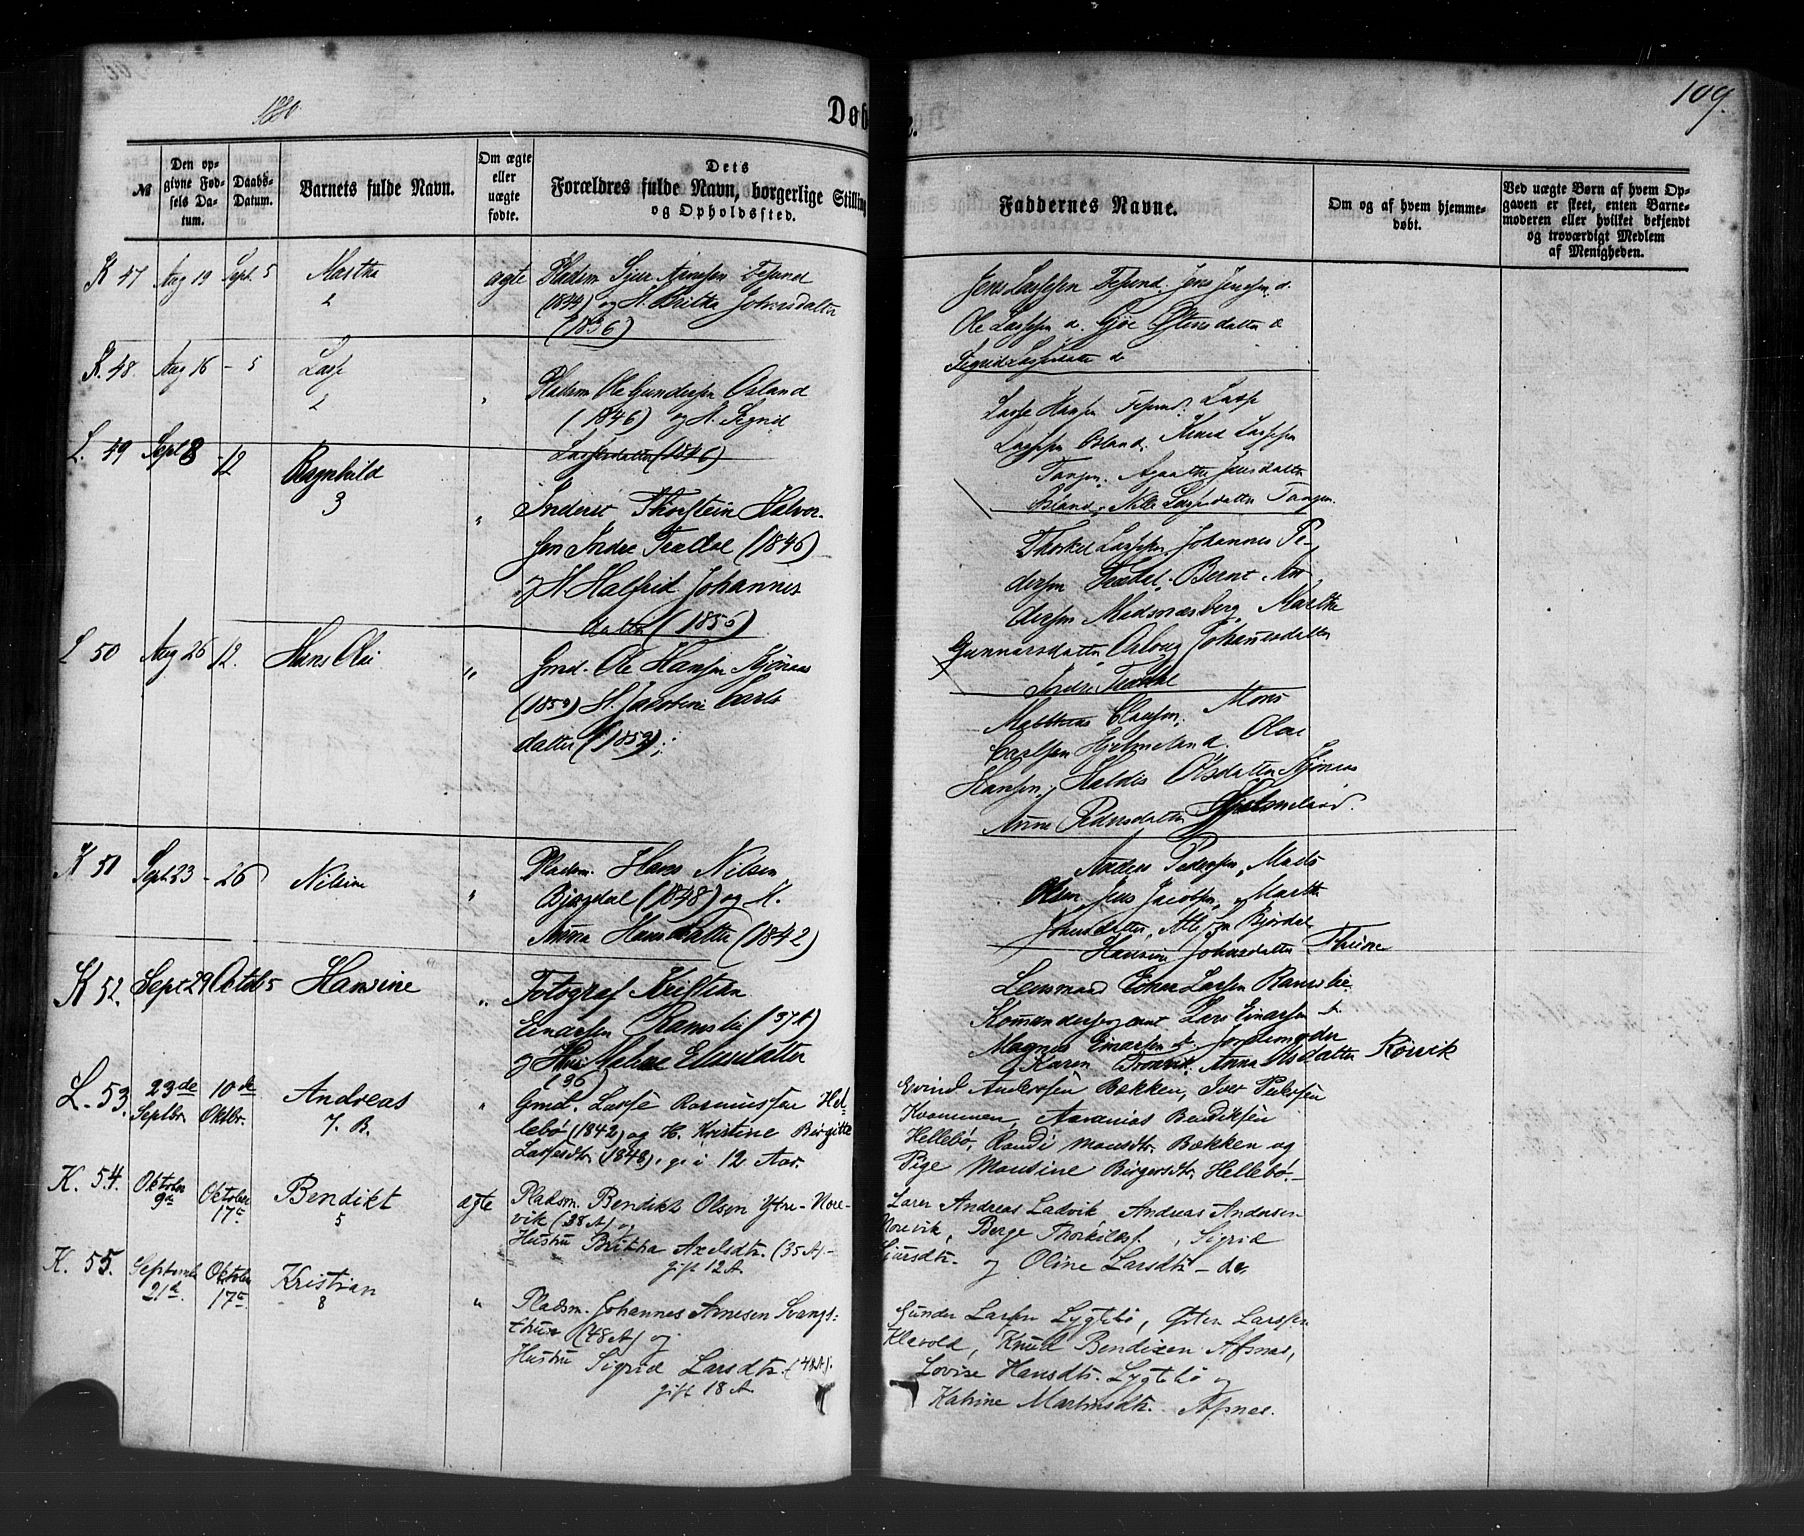 1880
Døb
109.
№
Den opgivne Fødsels Datum.
Daabs-Datum.
Barnets fulde Navn.
Om ægte eller uægte fødte.
Dets Forældres fulde Navn, borgerlige Stilling og Opholdssted.
Faddernes Navne.
Om og af hvem hjemmedøbt.
Ved uægte Børn af hvem Opgaven er skeet, enten Barnemoderen eller hvilket bekjendt og troværdigt Medlem af Menigheden.
K 47 Aug 19 Sept. 5 Martha ægte Pladsm Sjur Arnesen Tesund
2
(1844) og H. Britha Johnsdatter
(1836)
Jens Lassesen Tesund. Jens Jensen d.
Ole Lassesen d.
Sigrid Lassesdatter d
K. 48 Aug 16 - 5 Lasse " Pladsm Ole Gundersen Osland
2
(1846) og H. Sigrid
Lassesdatter (1846)
Lasse Hansen Tesund. Lasse
Lassesen Osland. Knud Lassesen
Tangen. Agathe Jensdatter
Osland. Lassesdatter Tangen
L. 49 Sept 8 - 12 Ragnhild " Inderst Thorstein Halvor-
3
sen Indre Tradal (1846)
og H Halfrid Johannes
datter (1856)
Thorkel Lassesen, Johannes Pe-
dersen Tradal. Bernt An
dersen Madsnæsberg, Martha
Gunnarsdatter, Johannesdatter
Indre Tradal
L 50 Aug 26 12. Hans Olai " Gmd. Ole Hansen
(1850) H. Jacobine Carls
datter (1852);
Matthias Clausen, Mons
Carlsen Hjelmeland. Olai
Hansen, Haldis Olsdatter
Anne Pedersdatter Hjelmeland.
K 51 Sept. 23 - 26 Nilsine " Pladsm. Hans Nilsen
Bjørdal (1848) og H.
Anna Hansdatter (1842)
Anders Pedersen, Mads
Olsen, Jens Jacobsen, Martha
Johnsdatter, Alle fra Bjørdal
Hansine Johnsdatter
K 52. Sept 29 Octob 5 Hansine " Fotograf Kristian
Einarsen Ramslie (37 A)
og Hu Malene Elensdatter
(36)
Lensmand Einar Larsen Ramslie
Komandersergeant Lars Einarsen
Magnes Einarsen st. Jordemoder
Karen Anna Olsdatter
L. 53. 23de 10de Andreas " Gmd. Lasse Rasmussen Hel-
Septbr. Oktbr. 7. B. lebø (1842) og H. Kristine Birgitte
Lassesdtr. (1848), g. i 12 Aar.
Evind Andersen Bækken, Iver Pedersen
Kvammen, Aananias Bendiksen
Hellebø, Randi Monsdtr. Bækken og
Pige Monsine Birgersdtr. Hellebø.
K. 54. Oktober Oktober Bendikt ægte Pladsm. Bendikt Olsen Ytre-Nore-
9de 17de 5 vik (38 A) og
Hustru Britha Axelsdtr. (35 A)-
gift 12 A
Lærer Andreas Ladvik, Andreas Andersen
Norevik, Berge Thorkildsf, Sigrid
Sjursdtr. og Oline Larsdtr - de,
K. 55. Septembr Oktober Kristian " Pladsm. Johannes Arnesen Svangs-
21de 17de 8 thun (48 A) og
Hustru Sigrid Larsdtr. (42 A).
gift 18 A
Gunder Larsen Lygtebø, Østen Larssen
Klævold, Knud Bendixen Afsnes,
Lovise Hansdtr. Lygtebø og
Katrine Martinsdtr. Afsnes.